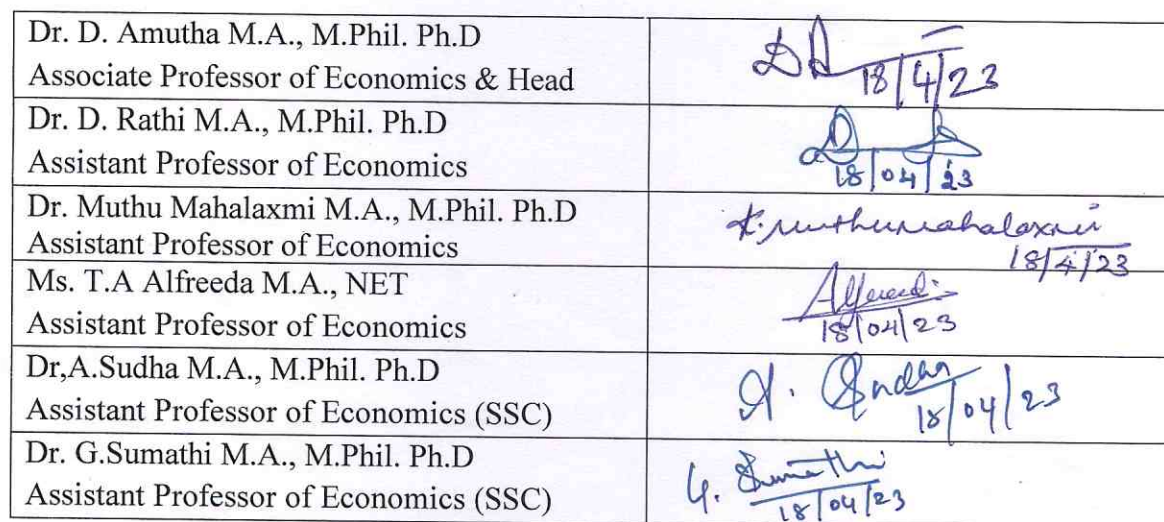 Dr. D. Amutha M.A., M.Phil. Ph.D
Associate Professor of Economics & Head
18/4/23
Dr. D. Rathi M.A., M.Phil. Ph.D
Assistant Professor of Economics
18/04/23
Dr. Muthu Mahalaxmi M.A., M.Phil. Ph.D
Assistant Professor of Economics
K. Muthumahalaxmi
18/4/23
Ms. T.A Alfreeda M.A., NET
Assistant Professor of Economics
18/04/23
Dr,A.Sudha M.A., M.Phil. Ph.D
Assistant Professor of Economics (SSC)
A. Sudha
18/04/23
Dr. G.Sumathi M.A., M.Phil. Ph.D
Assistant Professor of Economics (SSC)
G. Sumathi
18/04/23